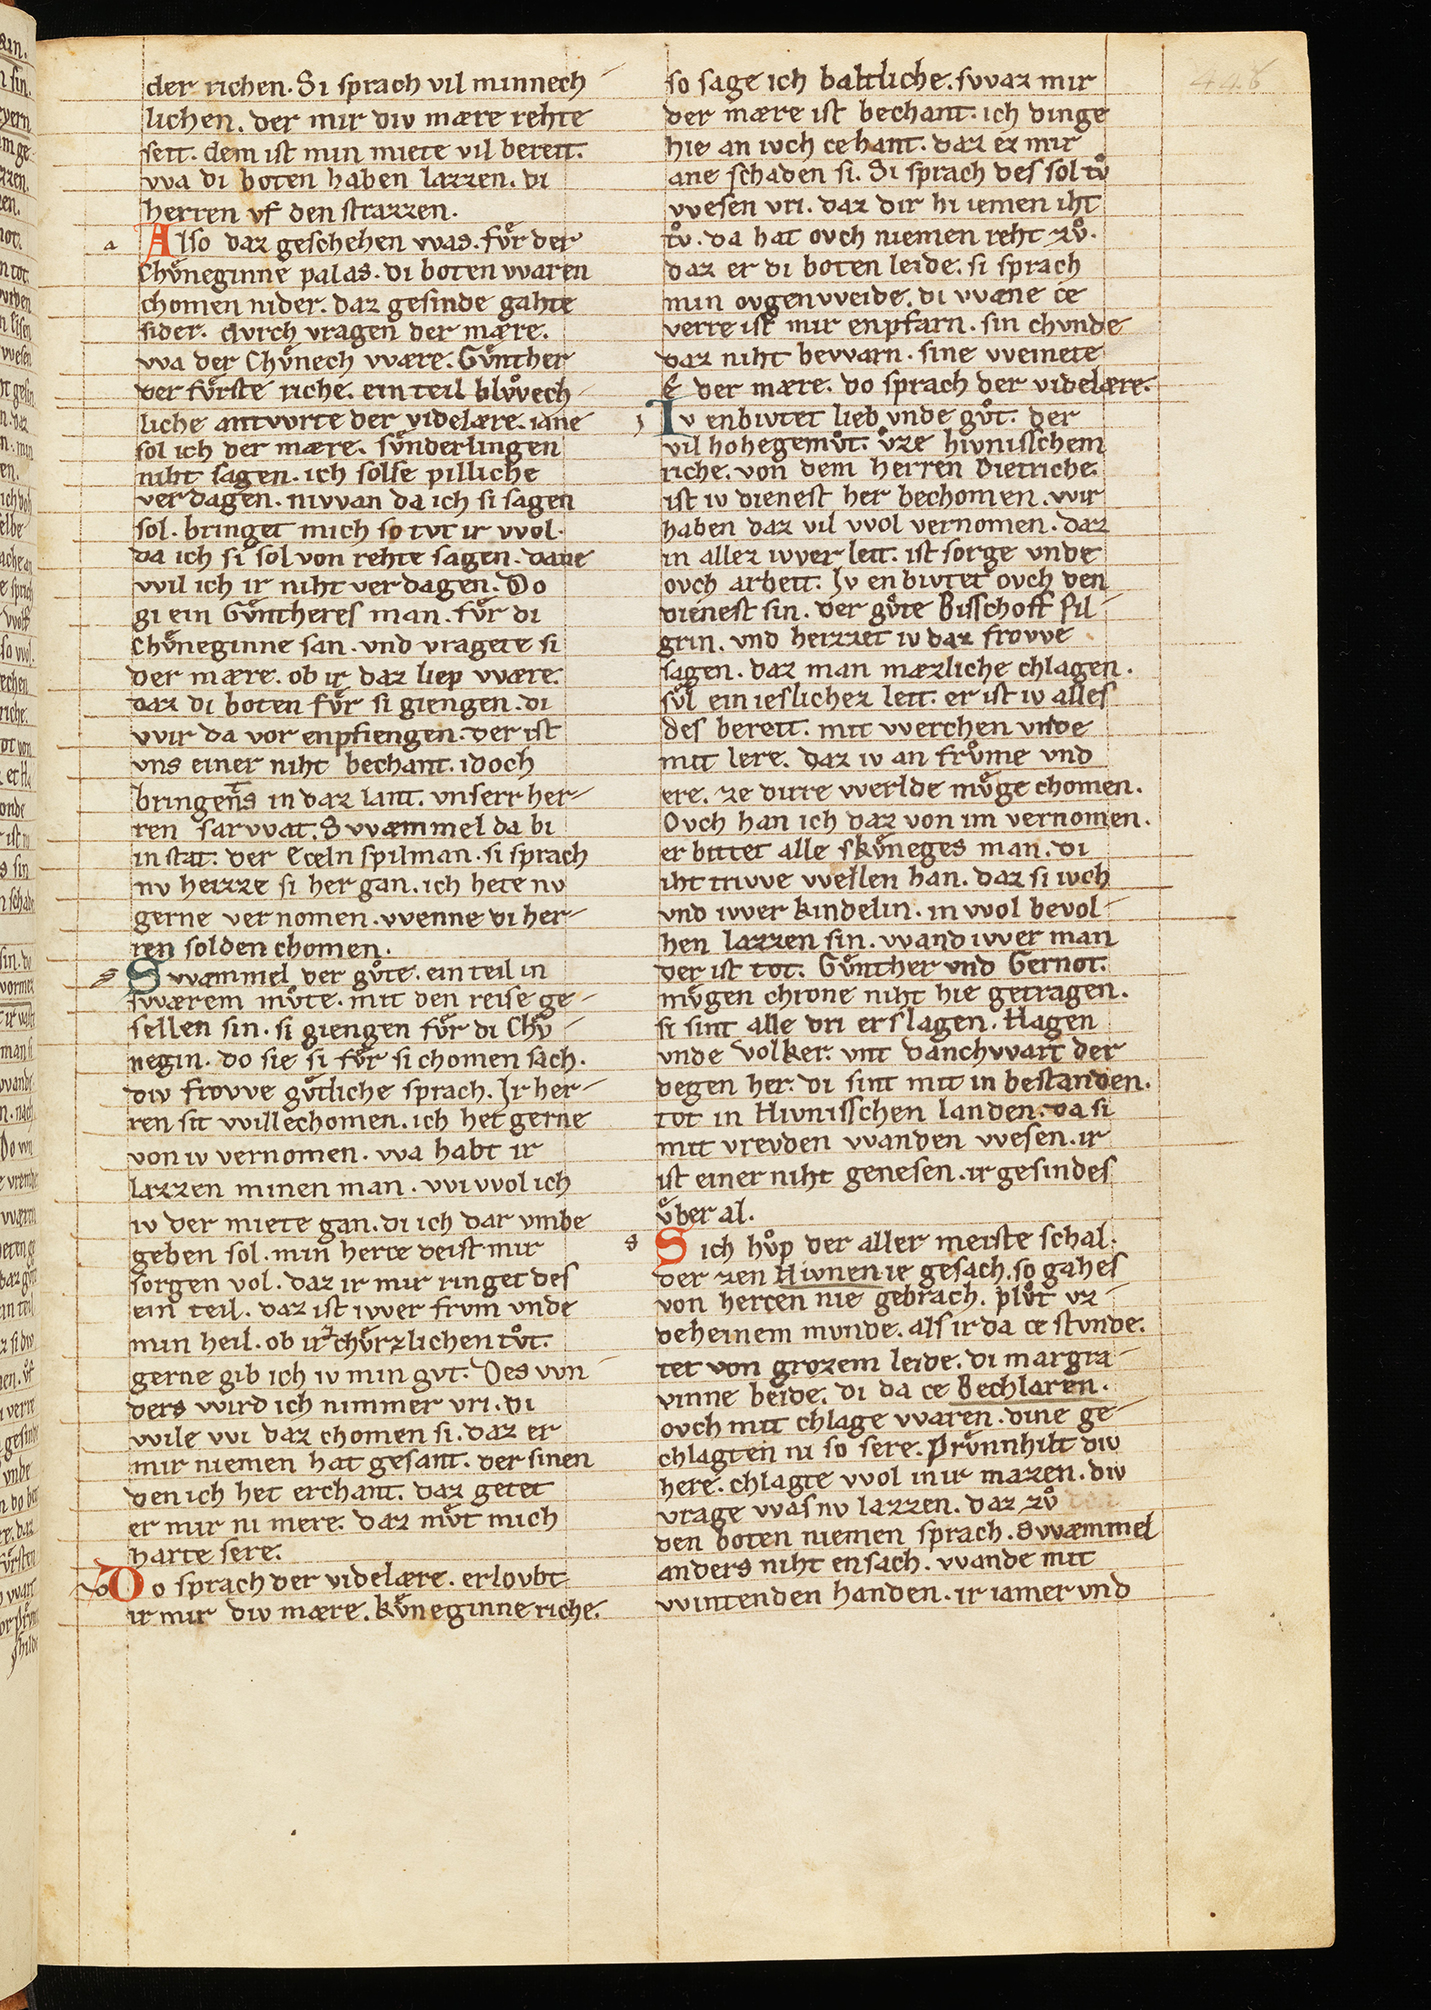 der richen. Si sprach vil minnech
lichen. der mir div mære rehte
seit. dem ist min miete vil bereit.
wa di boten haben lazzen. di
herren vf den strazzen.
Also daz geschehen was. fvͤr der
Chvͤneginne palas. di boten waren
chomen nider. daz gesinde gahte
sider. dvrch vragen der mære.
wa der Chvͤnech wære. Gvͤnther
der fvͤrste riche. ein teil blvͦvech
liche antvvrte der videlære. iane
sol ich der mære. svͤnderlingen
niht sagen. ich solse pilliche
verdagen. nivvan da ich si sagen
sol. bringet mich so tvt ir wol.
da ich si sol von rehte sagen. dane
wil ich ir niht verdagen. Do
gi ein Gvͤntheres man. fvͤr di
Chvͤneginne san. vnd vragete si
der mære. ob ir daz liep wære.
daz di boten fvͤr si giengen. di
wir da vor enpfiengen. der ist
vns einer niht bechant. idoch
bringens in daz lant. vnserr her-
ren sarwat. Swæmmel da bi
in stat. der Eceln spilman. si sprach
nv heizze si her gan. ich hete nv
gerne vernomen. wenne di her-
ren solden chomen.
Swæmmel der gvͦte. ein teil in
swærem mvͦte. mit den reise ge-
sellen sin. si giengen fvͤr di Chvͤ-
negin. do sie si fvͤr si chomen sach.
div frowe gvͤtliche sprach. Ir her-
ren sit willechomen. ich het gerne
von iv vernomen. wa habt ir
lazzen minen man. wi wol ich
iv der miete gan. di ich dar vmbe
geben sol. min herce deist mir
sorgen vol. daz ir mir ringet des
ein teil. daz ist iwer frvm vnde
min heil. ob irz chvͤrzlichen tvͦt.
gerne gib ich iv min gvt. Des vvn
ders wird ich nimmer vri. di
wile wi daz chomen si. daz er
mir niemen hat gesant. der sinen
den ich het erchant. daz getet
er mir ni mere. daz mvͤt mich
harte sere.
Do sprach der videlære. erlovbt
ir mir div mære. kvͤneginne riche.
so sage ich baltliche. swaz mir
der mære ist bechant. ich dinge
hie an ivch ce hant. daz ez mir
ane schaden si. Si sprach des soltv
wesen vri. daz dir hi iemen iht
tvͦ. da hat ovch niemen reht zvͦ.
daz er di boten leide. si sprach
min ovgenweide. di wæne ce
verre ist mir enpfarn. sin chvnde
daz niht bewarn. sine weinete
E der mære. do sprach der videlære.
Iv enbivtet lieb vnde gvͦt. der
vil hohegemvͦt. vͤze hivnisschem
riche. von dem herren Dietriche.
ist iv dienest her bechomen. wir
haben daz vil wol vernomen. daz
in allez iwer leit. ist sorge vnde
ovch arbeit. Iv enbivtet ovch den
dienest sin. der gvͦte Bisschoff Pil-
grin. vnd heizzet iv daz frowe
sagen. daz man mæzliche chlagen.
svͤl ein ieslichez leit. er ist iv alles
des bereit. mit werchen vnde
mit lere. daz iv an frvͦme vnd
ere. ze dirre werlde mvͤge chomen.
Ovch han ich daz von im vernomen.
er bittet alle skvͤneges man. di
iht triwe wellen han. daz si ivch
vnd iwer kindelin. in wol bevol-
hen lazzen sin. wand iwer man
der ist tot. Gvͤnther vnd Gernot.
mvͤgen chrone niht hie getragen.
si sint alle dri erslagen. Hagen
vnde Volker. vnt Danchwart der
degen her. di sint mit in bestanden.
tot in Hivnisschen landen. da si
mit vrevden wanden wesen. ir
ist einer niht genesen. ir gesindes
vͤber al.
Sich hvͦp der aller meiste schal.
der zen Hivnen ie gesach. so gahes
von hercen nie gebrach. plvͦt vz
deheinem mvnde. als ir da ce stvnde.
tet von grozem leide. di margra-
vinne beide. di da ce Bechlaren.
ovch mit chlage waren. dine ge-
chlagten ni so sere. Prvͤnnhilt div
here. chlagte wol in ir mazen. div
vrage was nv lazzen. daz zvͦ
den boten niemen sprach. Swæmmel
anders niht ensach. wande mit
wintenden handen. ir iamer vnd